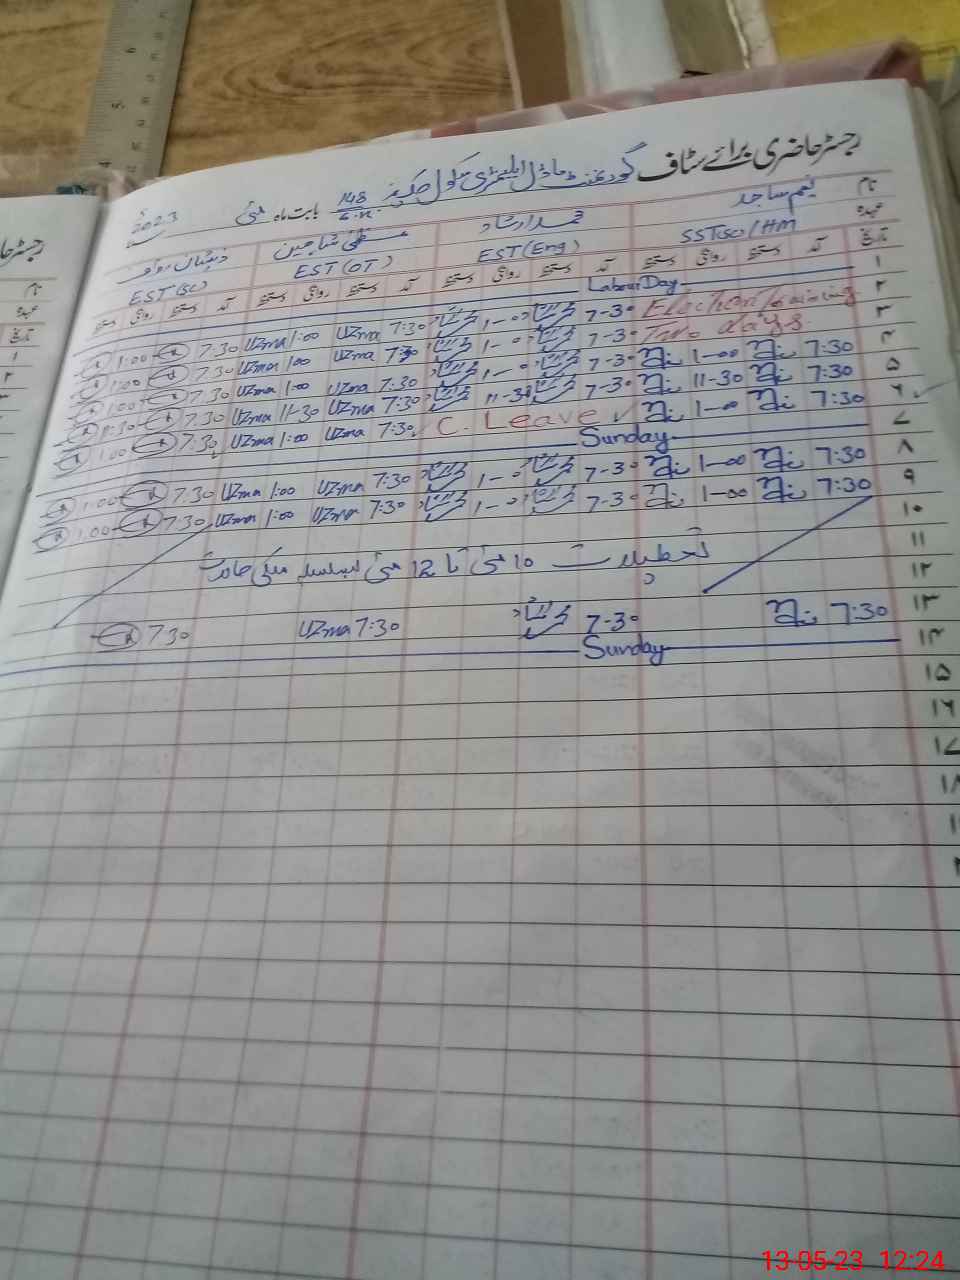 رجسٹر حاضری برائے سٹاف گورنمنٹ ماڈل ایلیمنٹری سکول چک نمبر 148 بابت ماہ مئی 2023
نام نعیم ساجد محمد ارشاد عظمیٰ شاہین
عہدہ SST(SC)/HM EST(Eng) EST(OT) EST(SC)
تاریخ آمد دستخط روانگی دستخط آمد دستخط روانگی دستخط آمد دستخط روانگی دستخط آمد دستخط روانگی دستخط
۱ Labour Day
۲ Election Training 7-30 1-00 7:30 Uzma 1:00 Uzma 7.30 1:00
۳ Two days 7-30 1-00 7:30 Uzma 1:00 Uzma 7.30 1:00
۴ 7:30 1-00 7-30 1-00 7:30 Uzma 1:00 Uzma 7.30 1:00
۵ 7:30 11-30 7-30 11-30 7:30 Uzma 11-30 Uzma 7.30 11:30
۶ 7:30 1-00 C. Leave 7:30 Uzma 1:00 Uzma 7:30 1:00
۷ Sunday
۸ 7:30 1-00 7-30 1-00 7:30 Uzma 1:00 Uzma 7.30 1:00
۹ 7:30 1-00 7-30 1-00 7:30 Uzma 1:00 Uzma 7:30 1.00
۱۰
۱۱ تعطیلات 10 مئی تا 12 مئی بسلسلہ ملکی حالات
۱۲
۱۳ 7:30 7-30 7:30 Uzma 7.30
۱۴ Sunday
۱۵
۱۶
۱۷
۱۸
رجسٹر حا
نام
عہدہ
تاریخ
۱
۲
13-05-23 12:24